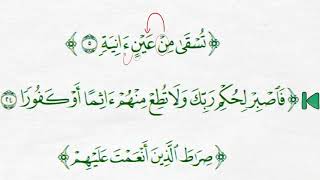 ﴿ تُسۡقَىٰ مِنۡ عَيۡنٍ ءَانِيَةٖ ٥ ﴾
﴿ فَٱصۡبِرۡ لِحُكۡمِ رَبِّكَ وَلَا تُطِعۡ مِنۡهُمۡ ءَاثِمًا أَوۡ كَفُورٗا ٢٤ ﴾
﴿ صِرَٰطَ ٱلَّذِينَ أَنۡعَمۡتَ عَلَيۡهِمۡ ﴾